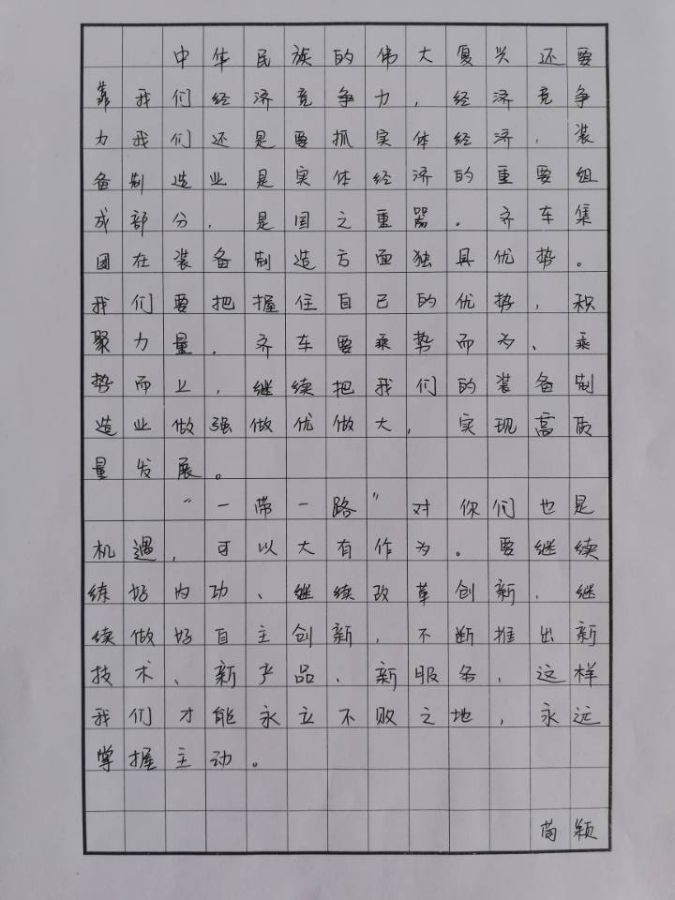 中华民族的伟大复兴还要
靠我们经济竞争力，经济竞争
力我们还是要抓实体经济，装
备制造业是实体经济的重要组
成部分，是国之重器。齐车集
团在装备制造方面独具优势。
我们要把握住自己的优势，积
聚力量，齐车要乘势而为、乘
势而上，继续把我们的装备制
造业做强做优做大，实现高质
量发展。
“一带一路”对你们也是
机遇，可以大有作为。要继续
练好内功、继续改革创新，继
续做好自主创新，不断推出新
技术、新产品、新服务，这样
我们才能永立不败之地，永远
掌握主动。
苘颖